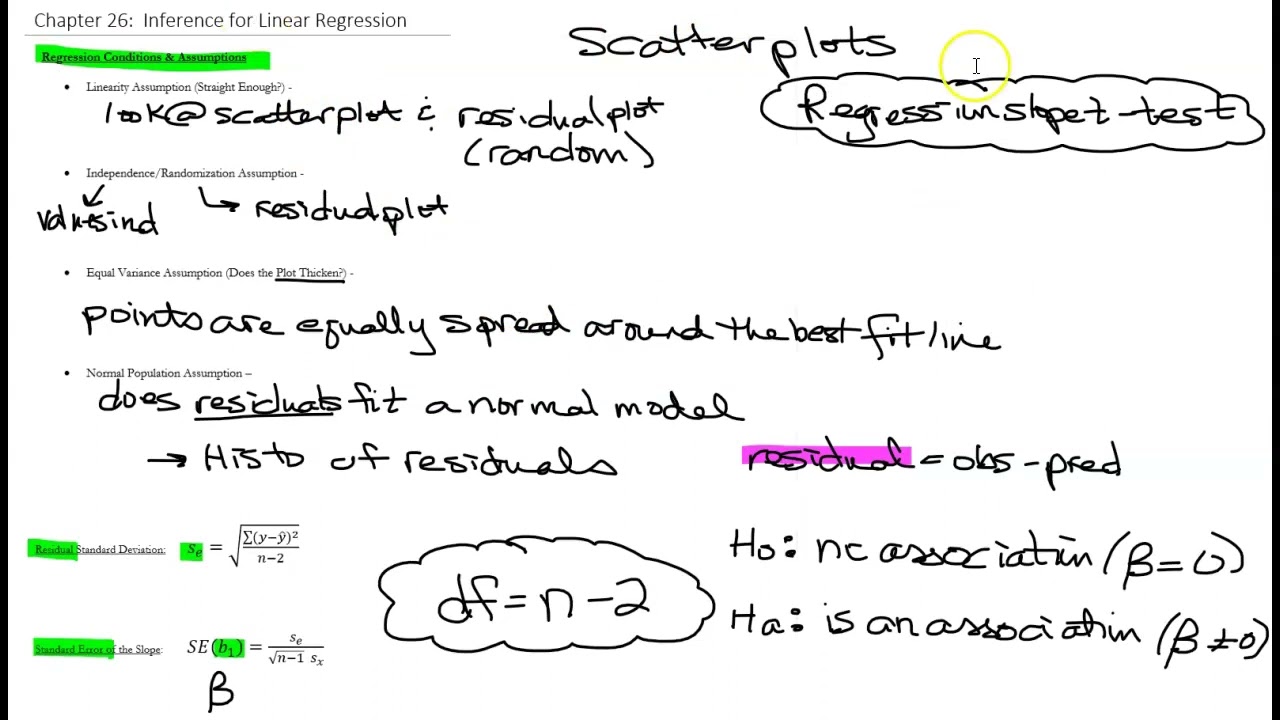 Chapter 26: Inference for Linear Regression
Scatterplots
Regression slope t-test
Regression Conditions & Assumptions
• Linearity Assumption (Straight Enough?) -
look @ scatterplot & residual plot
(random)
• Independence/Randomization Assumption -
values ind
↳ residual plot
• Equal Variance Assumption (Does the Plot Thicken?) -
points are equally spread around the best fit line
• Normal Population Assumption –
does residuals fit a normal model
→ Histo of residuals
residual = obs - pred
Residual Standard Deviation: sₑ = √(∑(y−ŷ)²/(n−2))
df = n - 2
Ho: no association (β = 0)
Ha: is an association (β ≠ 0)
Standard Error of the Slope: SE(b₁) = sₑ/(√(n−1) sₓ)
β